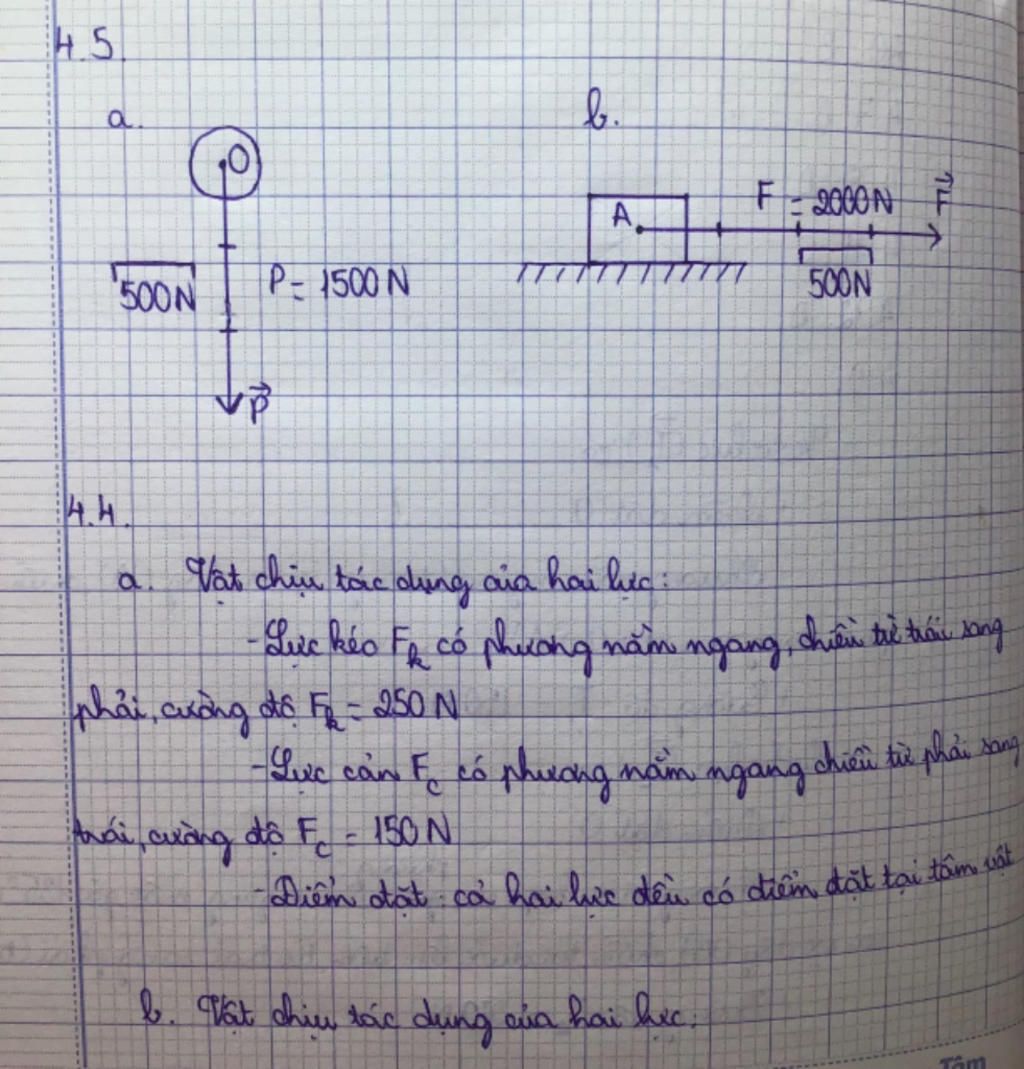 4.5.
a.
b.
O
A
F = 2000N
F⃗
500N
P = 1500N
500N
P⃗
4.4.
a. Vật chịu tác dụng của hai lực:
- Lực kéo Fk có phương nằm ngang, chiều từ trái sang
phải, cường độ Fk = 250 N
- Lực cản Fc có phương nằm ngang chiều từ phải sang
trái, cường độ Fc = 150 N
- Điểm đặt: cả hai lực đều có điểm đặt tại tâm vật
b. Vật chịu tác dụng của hai lực:
Tâm